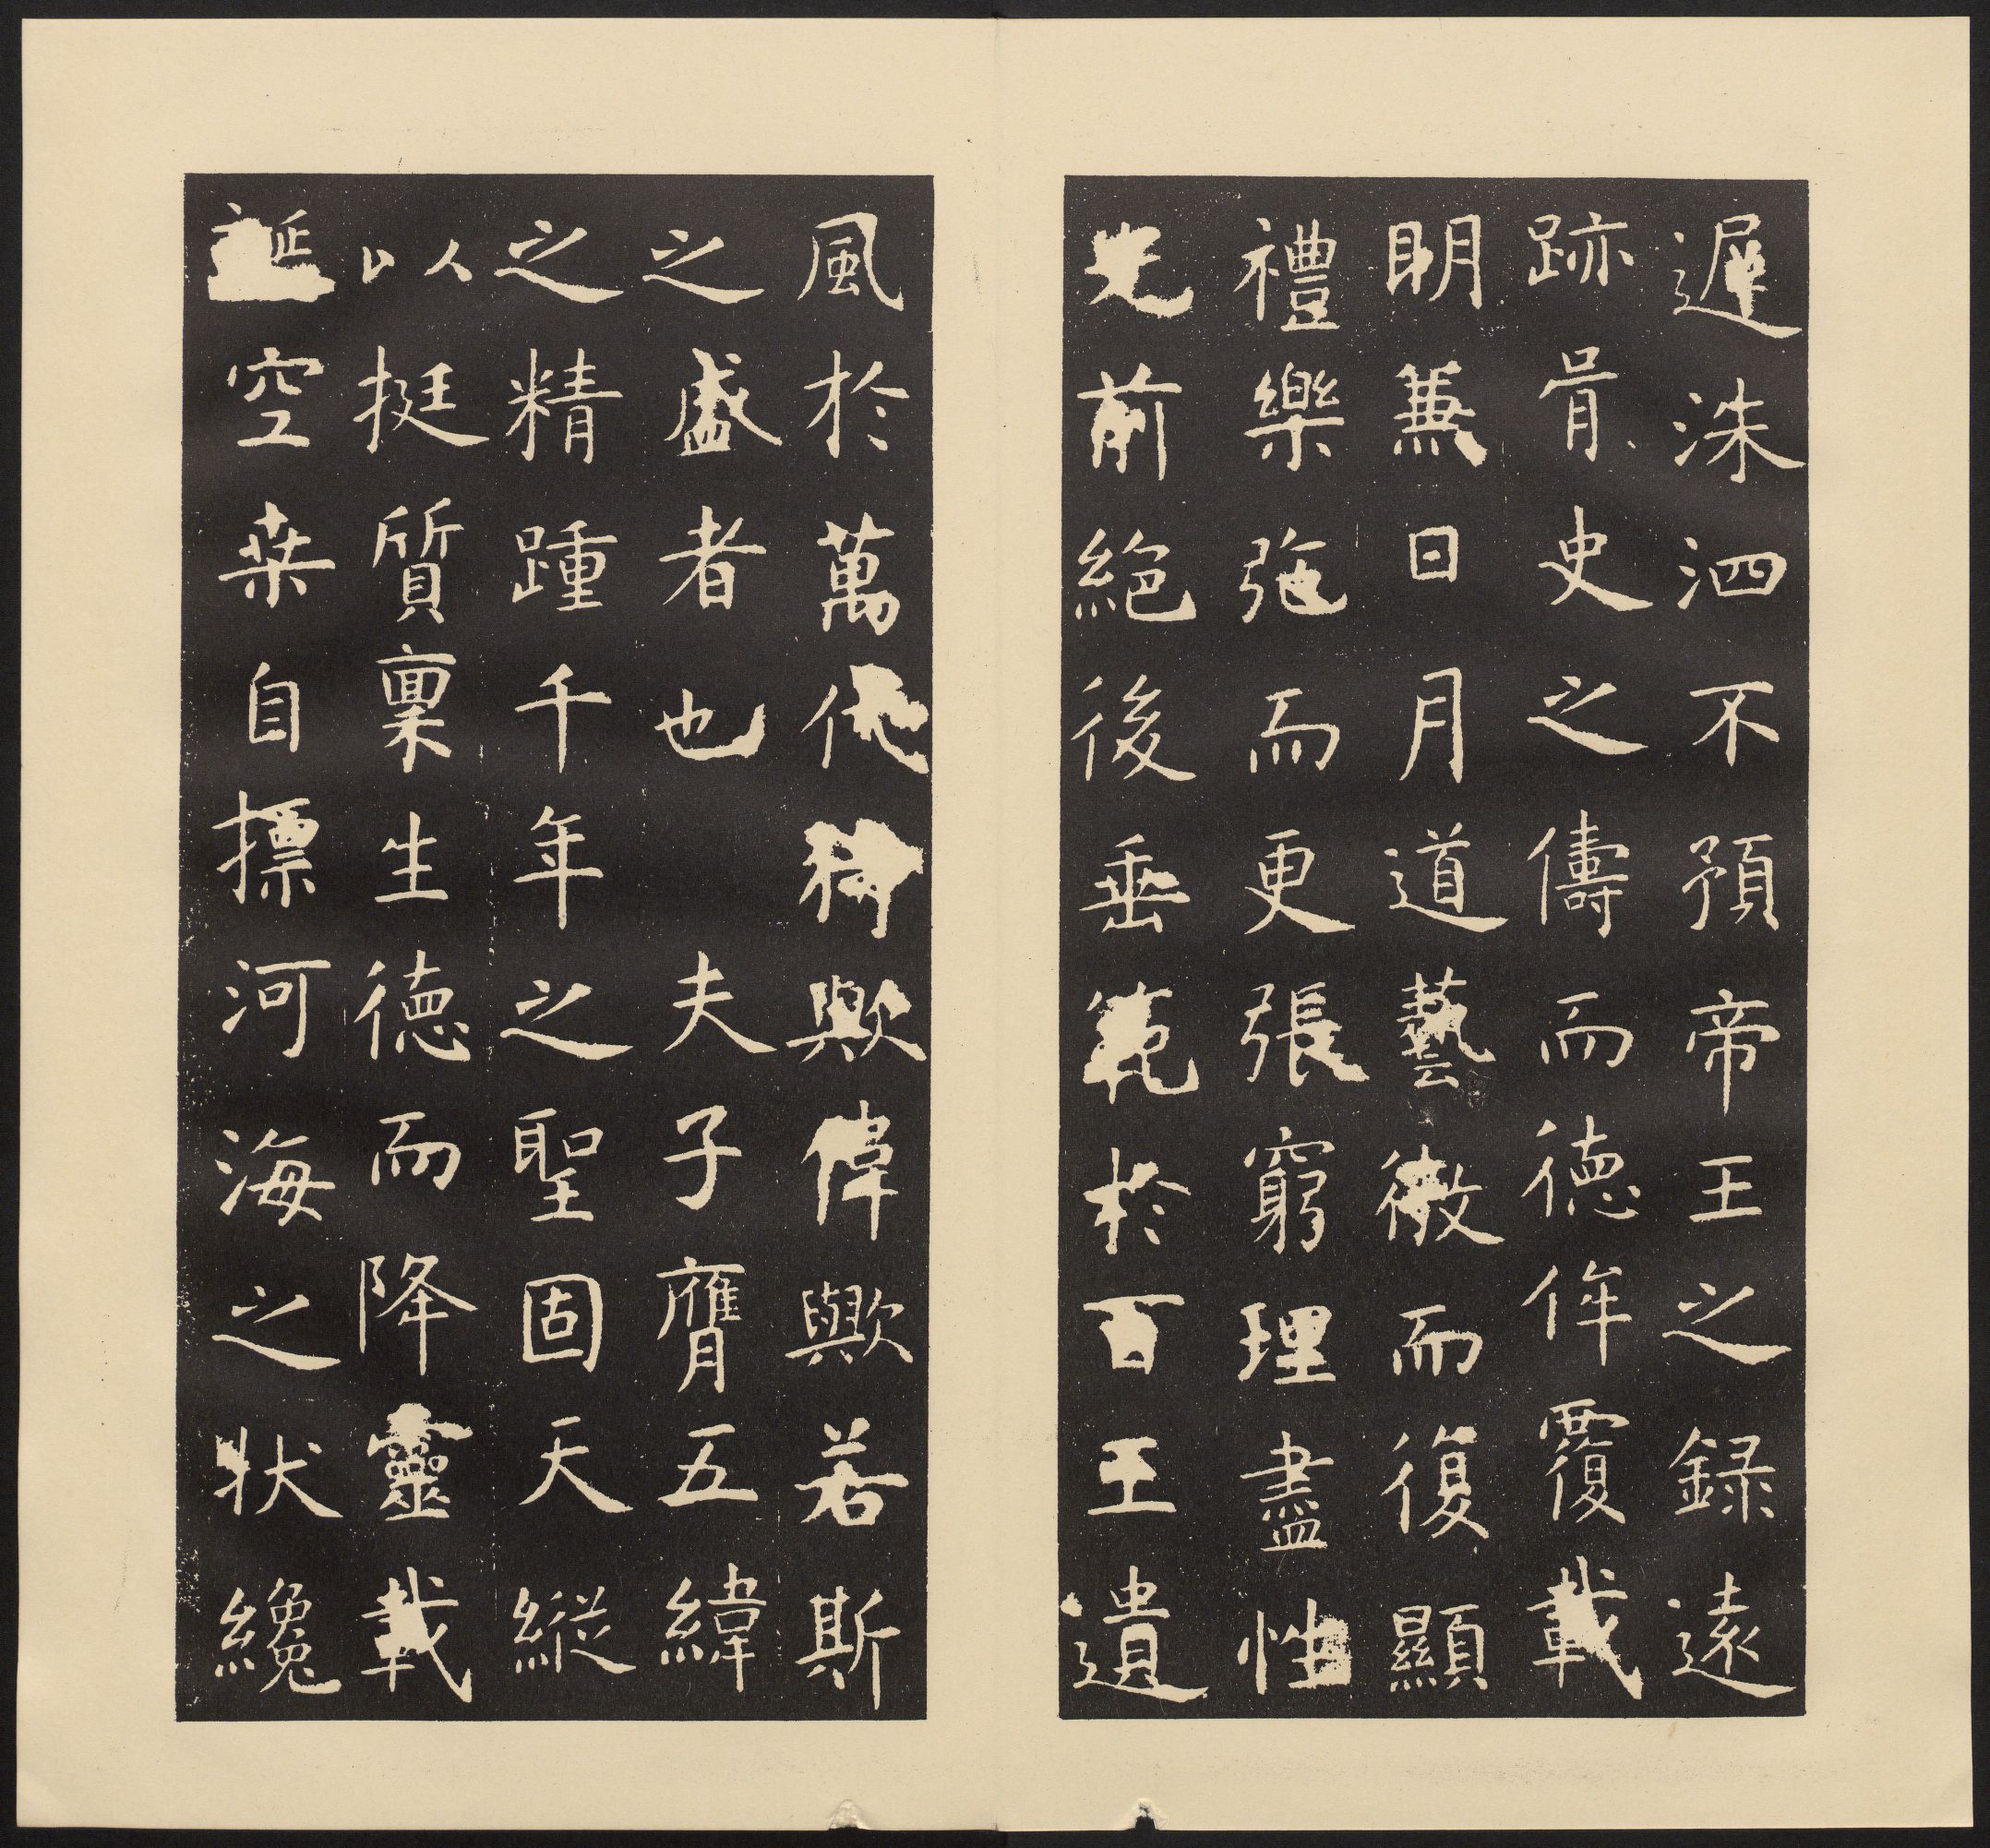 遲洙泗不預帝王之録遠
跡胥史之儔而德侔覆載
明蒹日月道藝微而復顯
禮樂弛而更張窮理盡性
光前絶後垂範於百王遺
風於萬代猗歟偉歟若斯
之盛者也夫子膺五緯
之精踵千年之聖固天縦
以挺質稟生德而降靈載
誕空桒自摽河海之狀纔